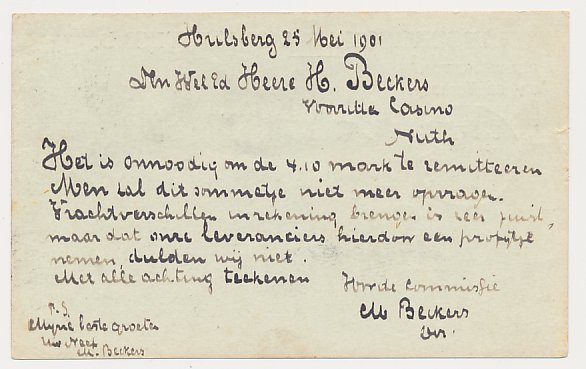 Hulsberg 25 Mei 1901
Den WelEd Heere H. Beckers
Voorzitter Casino
Nuth
Het is onnoodig om de 4.10 mark te remitteeren
Men zal dit sommetje niet meer opvragen.
Vrachtverschillen in rekening brengen is zeer juist,
maar dat onze leveranciers hierdoor een profijtje
nemen, dulden wij niet.
Met alle achting teekenen
Voor de Commissie
M Beckers
Vrs.
P.S.
Mijne beste groeten
Uw Neef
M. Beckers